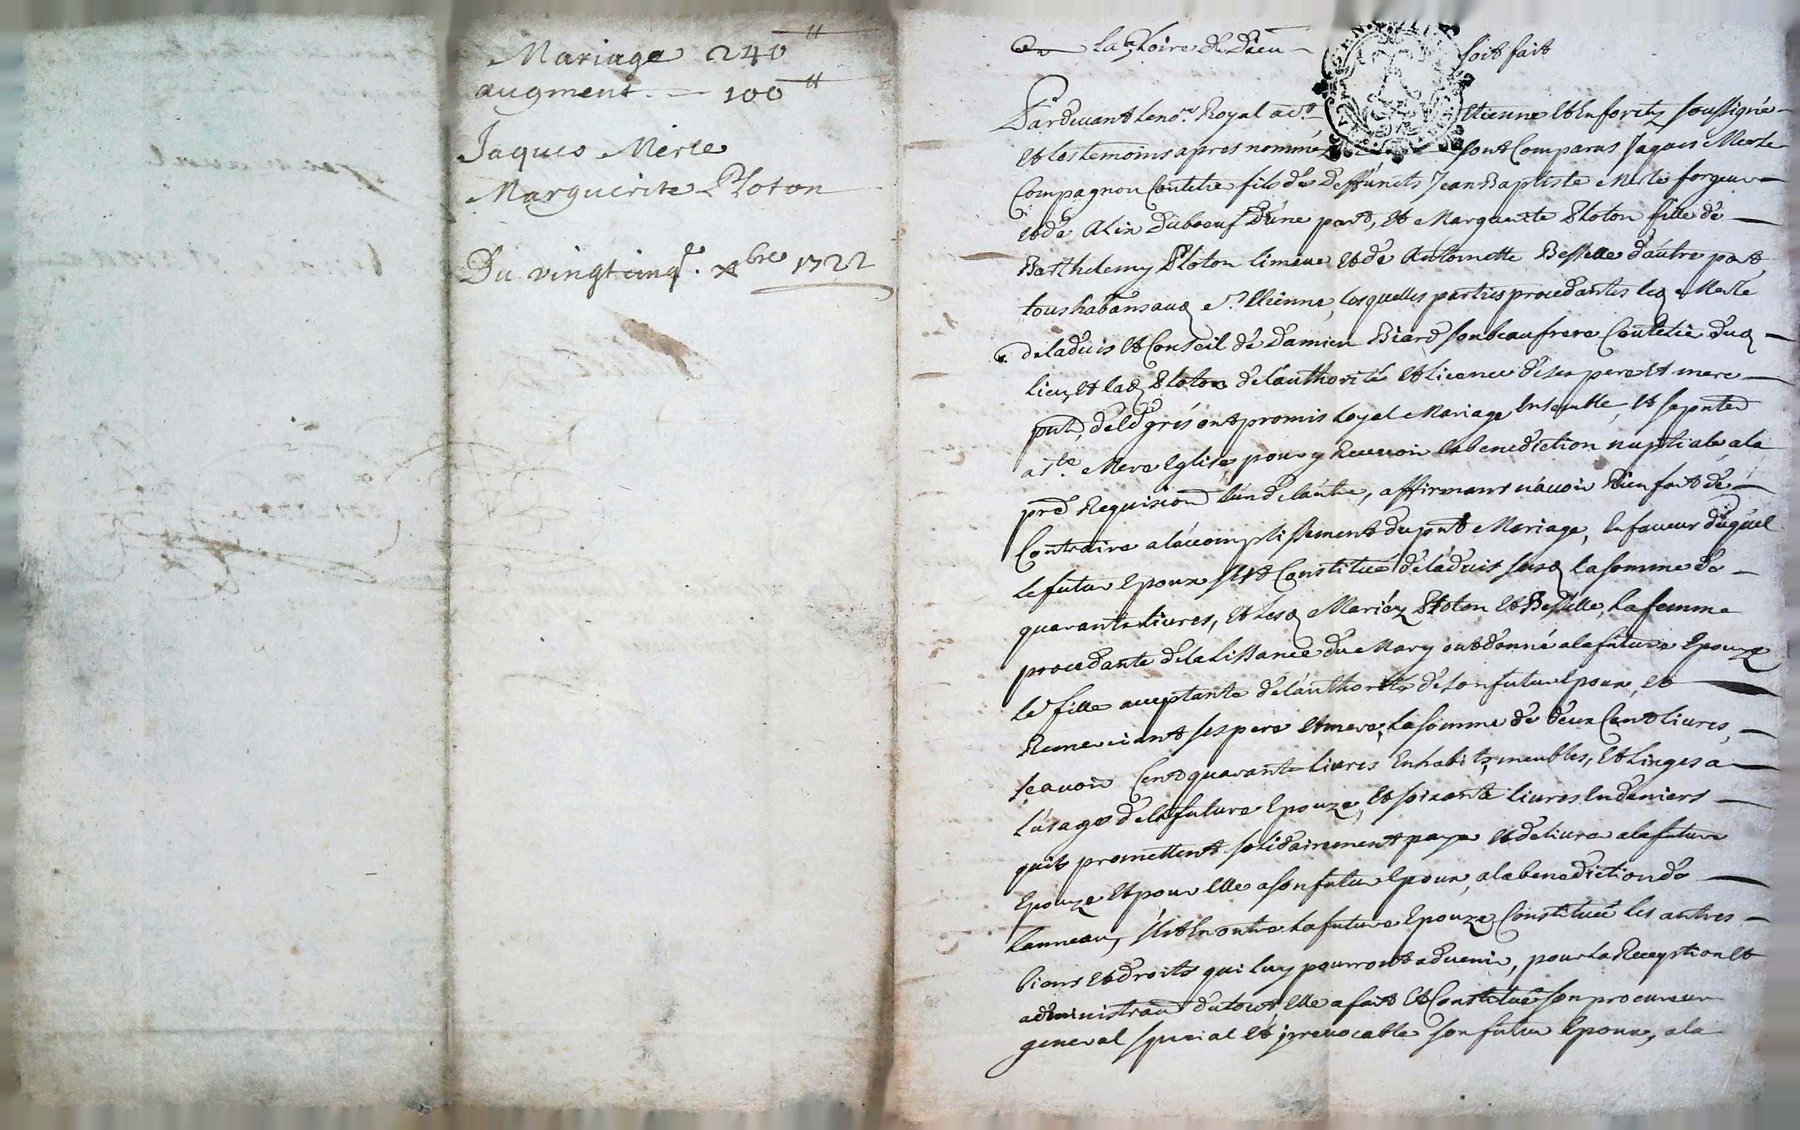 Mariage 240 ₶
augment. — 100 ₶
Jaques Merle
Marguerite Ploton
Du vingtcinq.e xbre 1722
A la Gloire de Dieu soit fait
Pardevant le no.re Royal a St Etienne en forez soussigné
et les temoins apres nommés sont Comparus Jaques Merle
Compagnon Coutelie fils des deffuncts Jean Baptiste Merle forgeur
et de Alix Duboeuf d'une part, et Marguerite Ploton fille de
Barthelemy Ploton limeur et de Antoinette Bessette d'autre part
tous habans aud St. Etienne, lesquelles parties procedantes led Merle
de l'aduis et Conseil de Damien Biard son beaufrere Coutelie dud
lieu, et lad Ploton de l'authorité et licence de ses pere et mere
pnts, de leur gré ont promis loyal Mariage Ensemble, et se pnter
a Ste Mere Eglise pour y Receuoir la benediction nuptiale, a la
pre Requision l'un de l'autre, affirmans n'auoir Rien fait de
Contraire a l'accomplissement du pnt Mariage, En faueur duquel
le futur Epoux s'est Constitué de l'aduis susd la somme de
quarante liures, et lesd Mariéz Ploton et Bessette, la femme
procedante de la lissance du Mary ont donné a la future Epouze
leur fille acceptante de l'authorité de son futur Epoux, et
Remerciant ses pere et mere, la somme de deux Cent liures,
scauoir Cent quarante liures En habits, meubles, et linges a
l'usage de la future Epouze, et soixante liures En deniers
quils promettent solidairement paye et deliure a la future
Epouze et pour elle a son futur Epoux, a la benediction de
lanneau, s'est En outre la future Epouze Constituée les autres
biens et droits qui luy pourront aduenir, pour la Reception et
administraon du tout elle a fait et Constitué son procureur
general special et jrreuocable son futur Epoux, a la